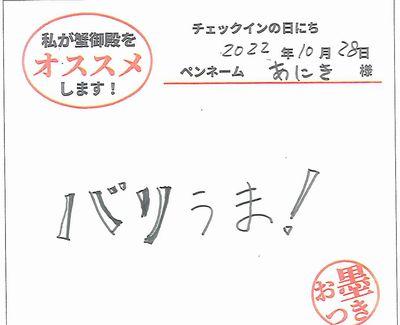 私が蟹御殿を
オススメ
します！
チェックインの日にち
2022 年 10 月 28 日
ペンネーム あにき 様
バリうま!
お墨つき